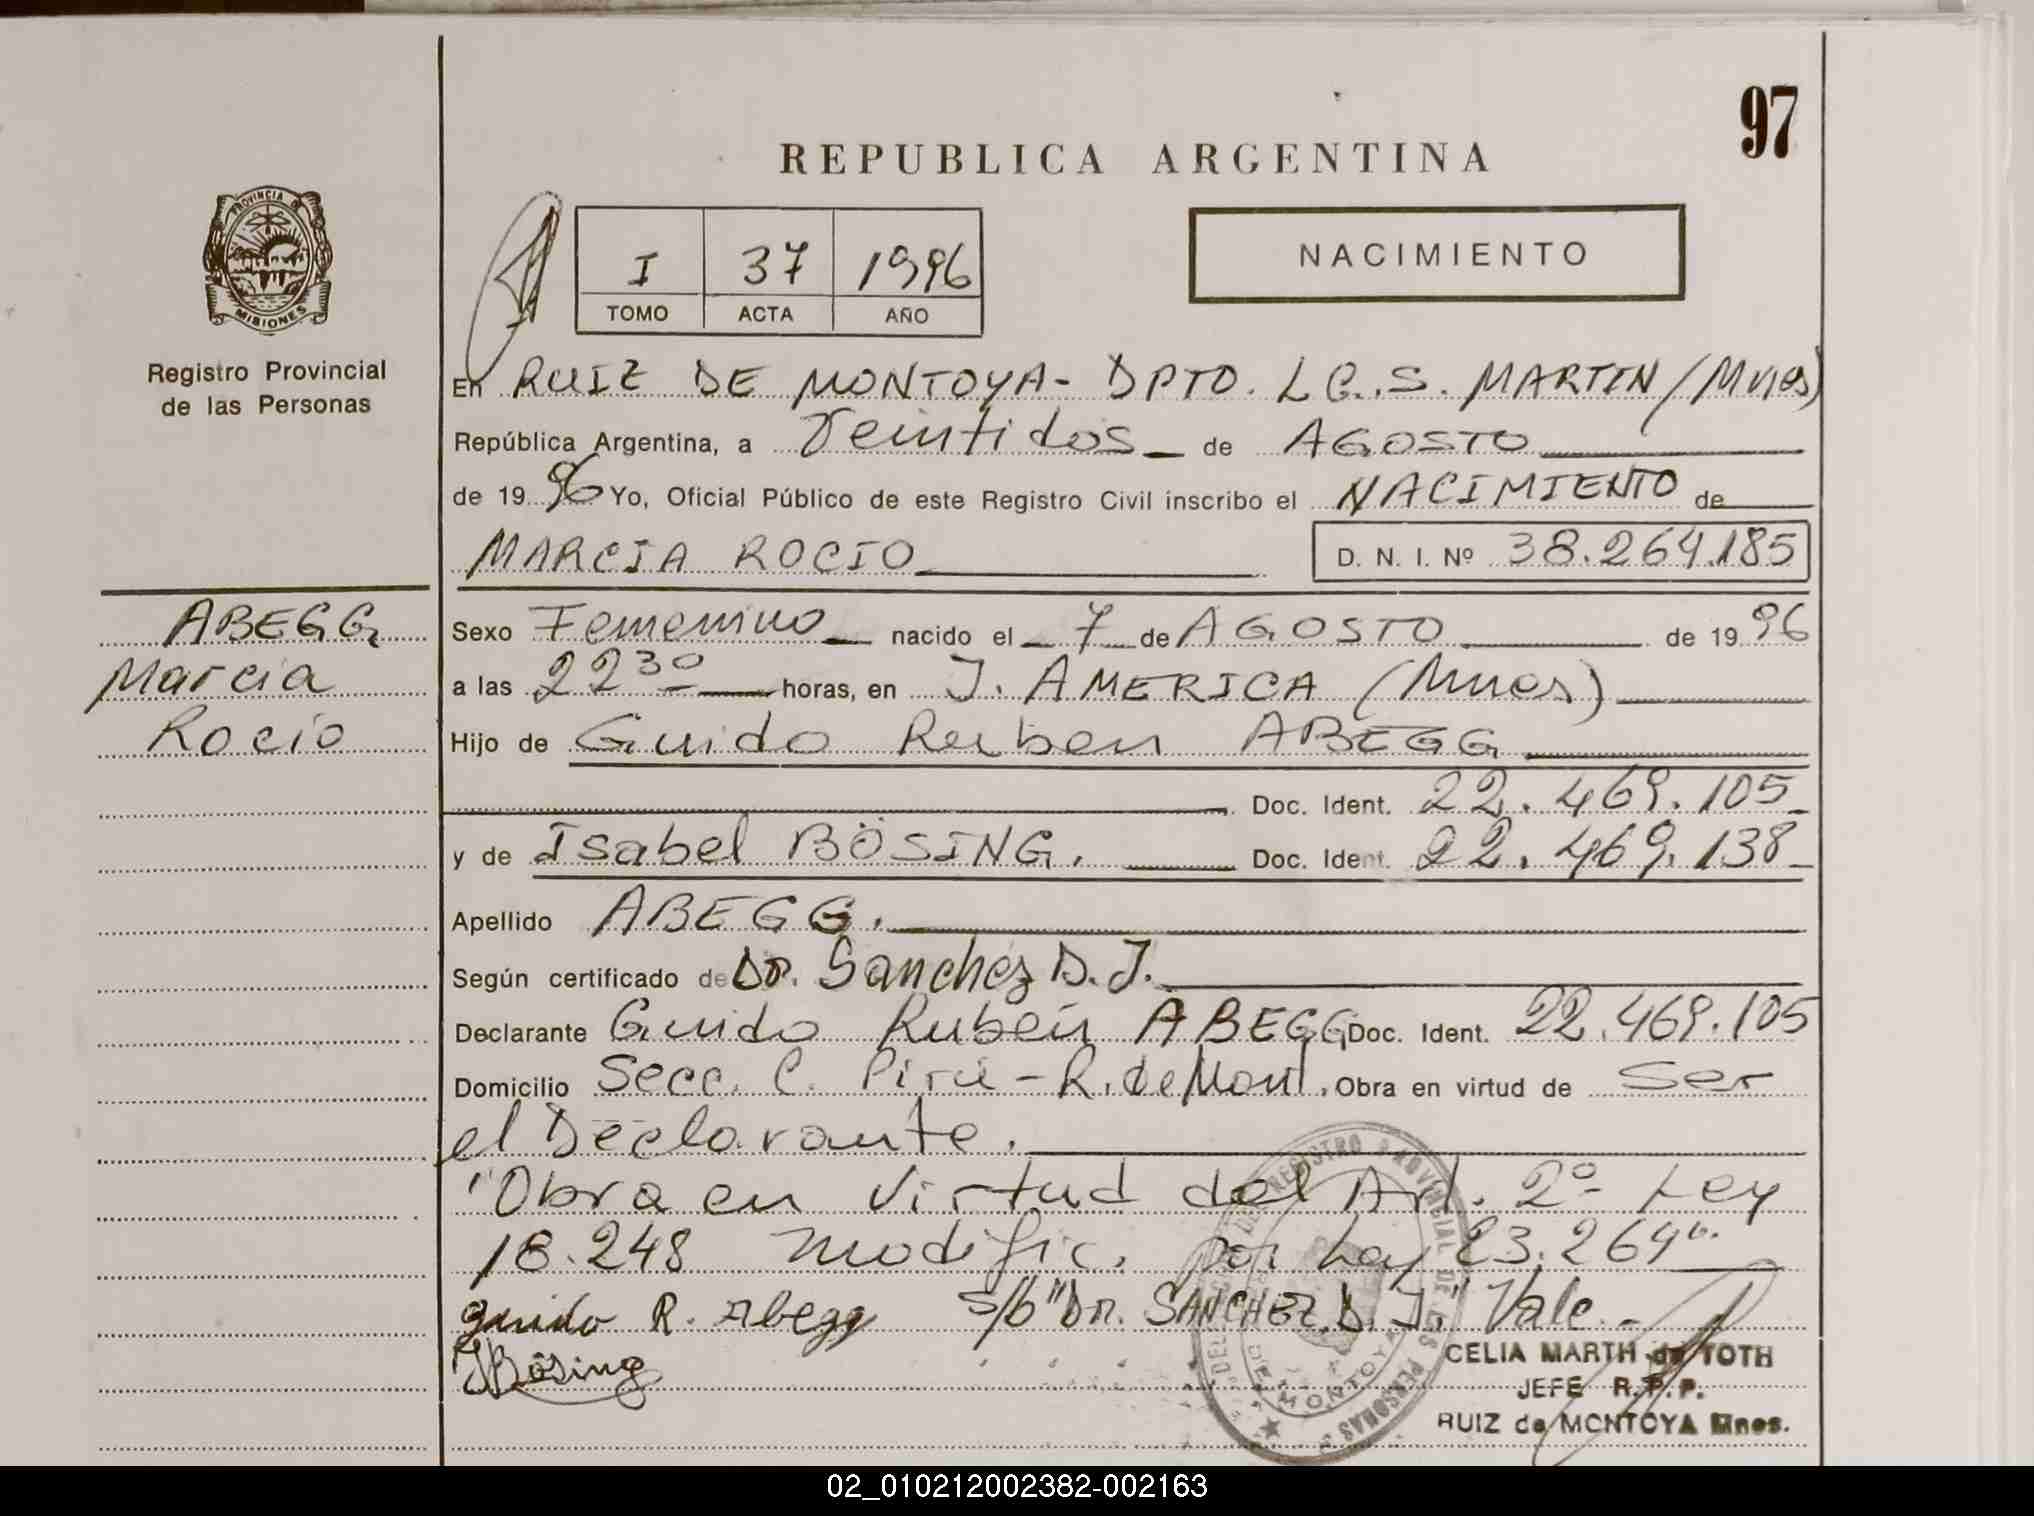 97
REPUBLICA ARGENTINA
PROVINCIA DE
MISIONES
Registro Provincial
de las Personas
I 37 1996
TOMO ACTA AÑO
NACIMIENTO
En RUIZ DE MONTOYA - DPTO. L G. S. MARTIN / (Mnes)
República Argentina, a Veintidos de AGOSTO
de 1996 Yo, Oficial Público de este Registro Civil inscribo el NACIMIENTO de
MARCIA ROCIO D. N. I. Nº 38.264.185
ABEGG
Marcia
Rocio
Sexo Femenino nacido el 7 de AGOSTO de 1996
a las 22 30 horas, en J. AMERICA (Mnes)
Hijo de Guido Ruben ABEGG
Doc. Ident. 22.469.105
y de Isabel BÖSING. Doc. Ident. 22.469.138
Apellido ABEGG.
Según certificado de Dr. Sanchez D. J.
Declarante Guido Rubén ABEGG Doc. Ident. 22.469.105
Domicilio Secc. C. Pirú - R. de Mont. Obra en virtud de Ser
el Declarante.
"Obra en virtud del Art. 2º Ley
18.248 modific. por Ley 23.264".
guido R. Abegg S/b "Dr. SANCHEZ D. J." Vale.-
IBösing
CELIA MARTH de TOTH
JEFE R.P.P.
RUIZ de MONTOYA Mnes.
02_010212002382-002163